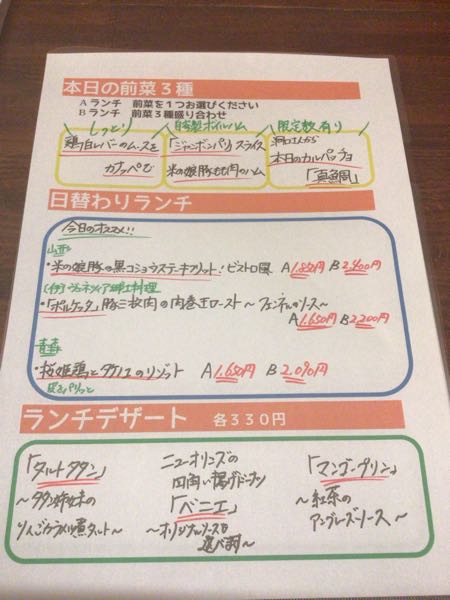 本日の前菜3種
Aランチ 前菜を1つお選びください
Bランチ 前菜3種盛り合わせ
しっとり
自家製ボイルハム
限定数有り
鶏白レバーのムースを
カナッペで
「ジャンボンパリ」スライス
米の娘豚もも肉のハム
本日のカルパッチョ
「真鯛」
日替わりランチ
今日のオススメ!!
山形
・米の娘豚の黒コショウステーキフリット:ビストロ風 A1.850円 B2.400円
郷土料理
・「ポルケッタ」豚三枚肉の肉巻きロースト〜フェンネルのソース〜
A1.650円 B2.200円
青森
・桜姫鶏とタケノコのリゾット A1.650円 B2.090円
皮目パリッと
ランチデザート 各330円
「タルトタタン」
〜タタン姉妹の
りんごカラメル煮タルト〜
ニューオリンズの
四角い揚げドーナツ
「ベニエ」
〜オリジナルソースを
「マンゴープリン」
〜紅茶の
アングレーズソース〜